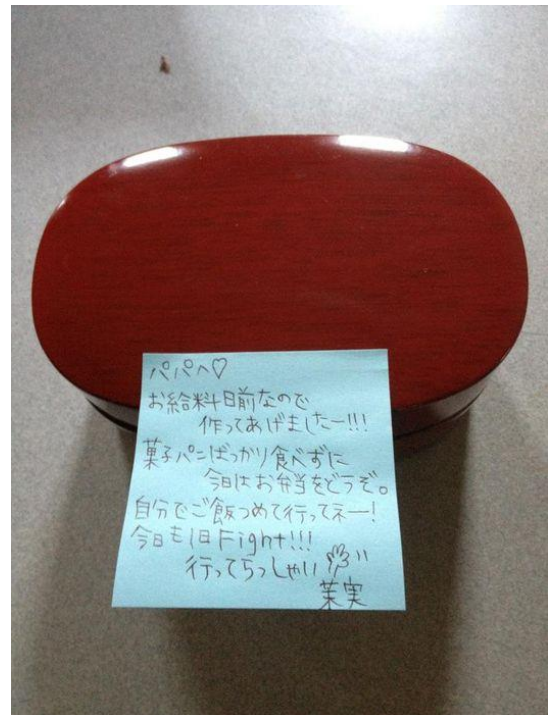 パパへ♡
お給料日前なので
作ってあげましたー!!!
菓子パンばっかり食べずに
今日はお弁当をどうぞ。
自分でご飯つめて行ってネー!
今日も1日Fight!!!
行ってらっしゃい
実